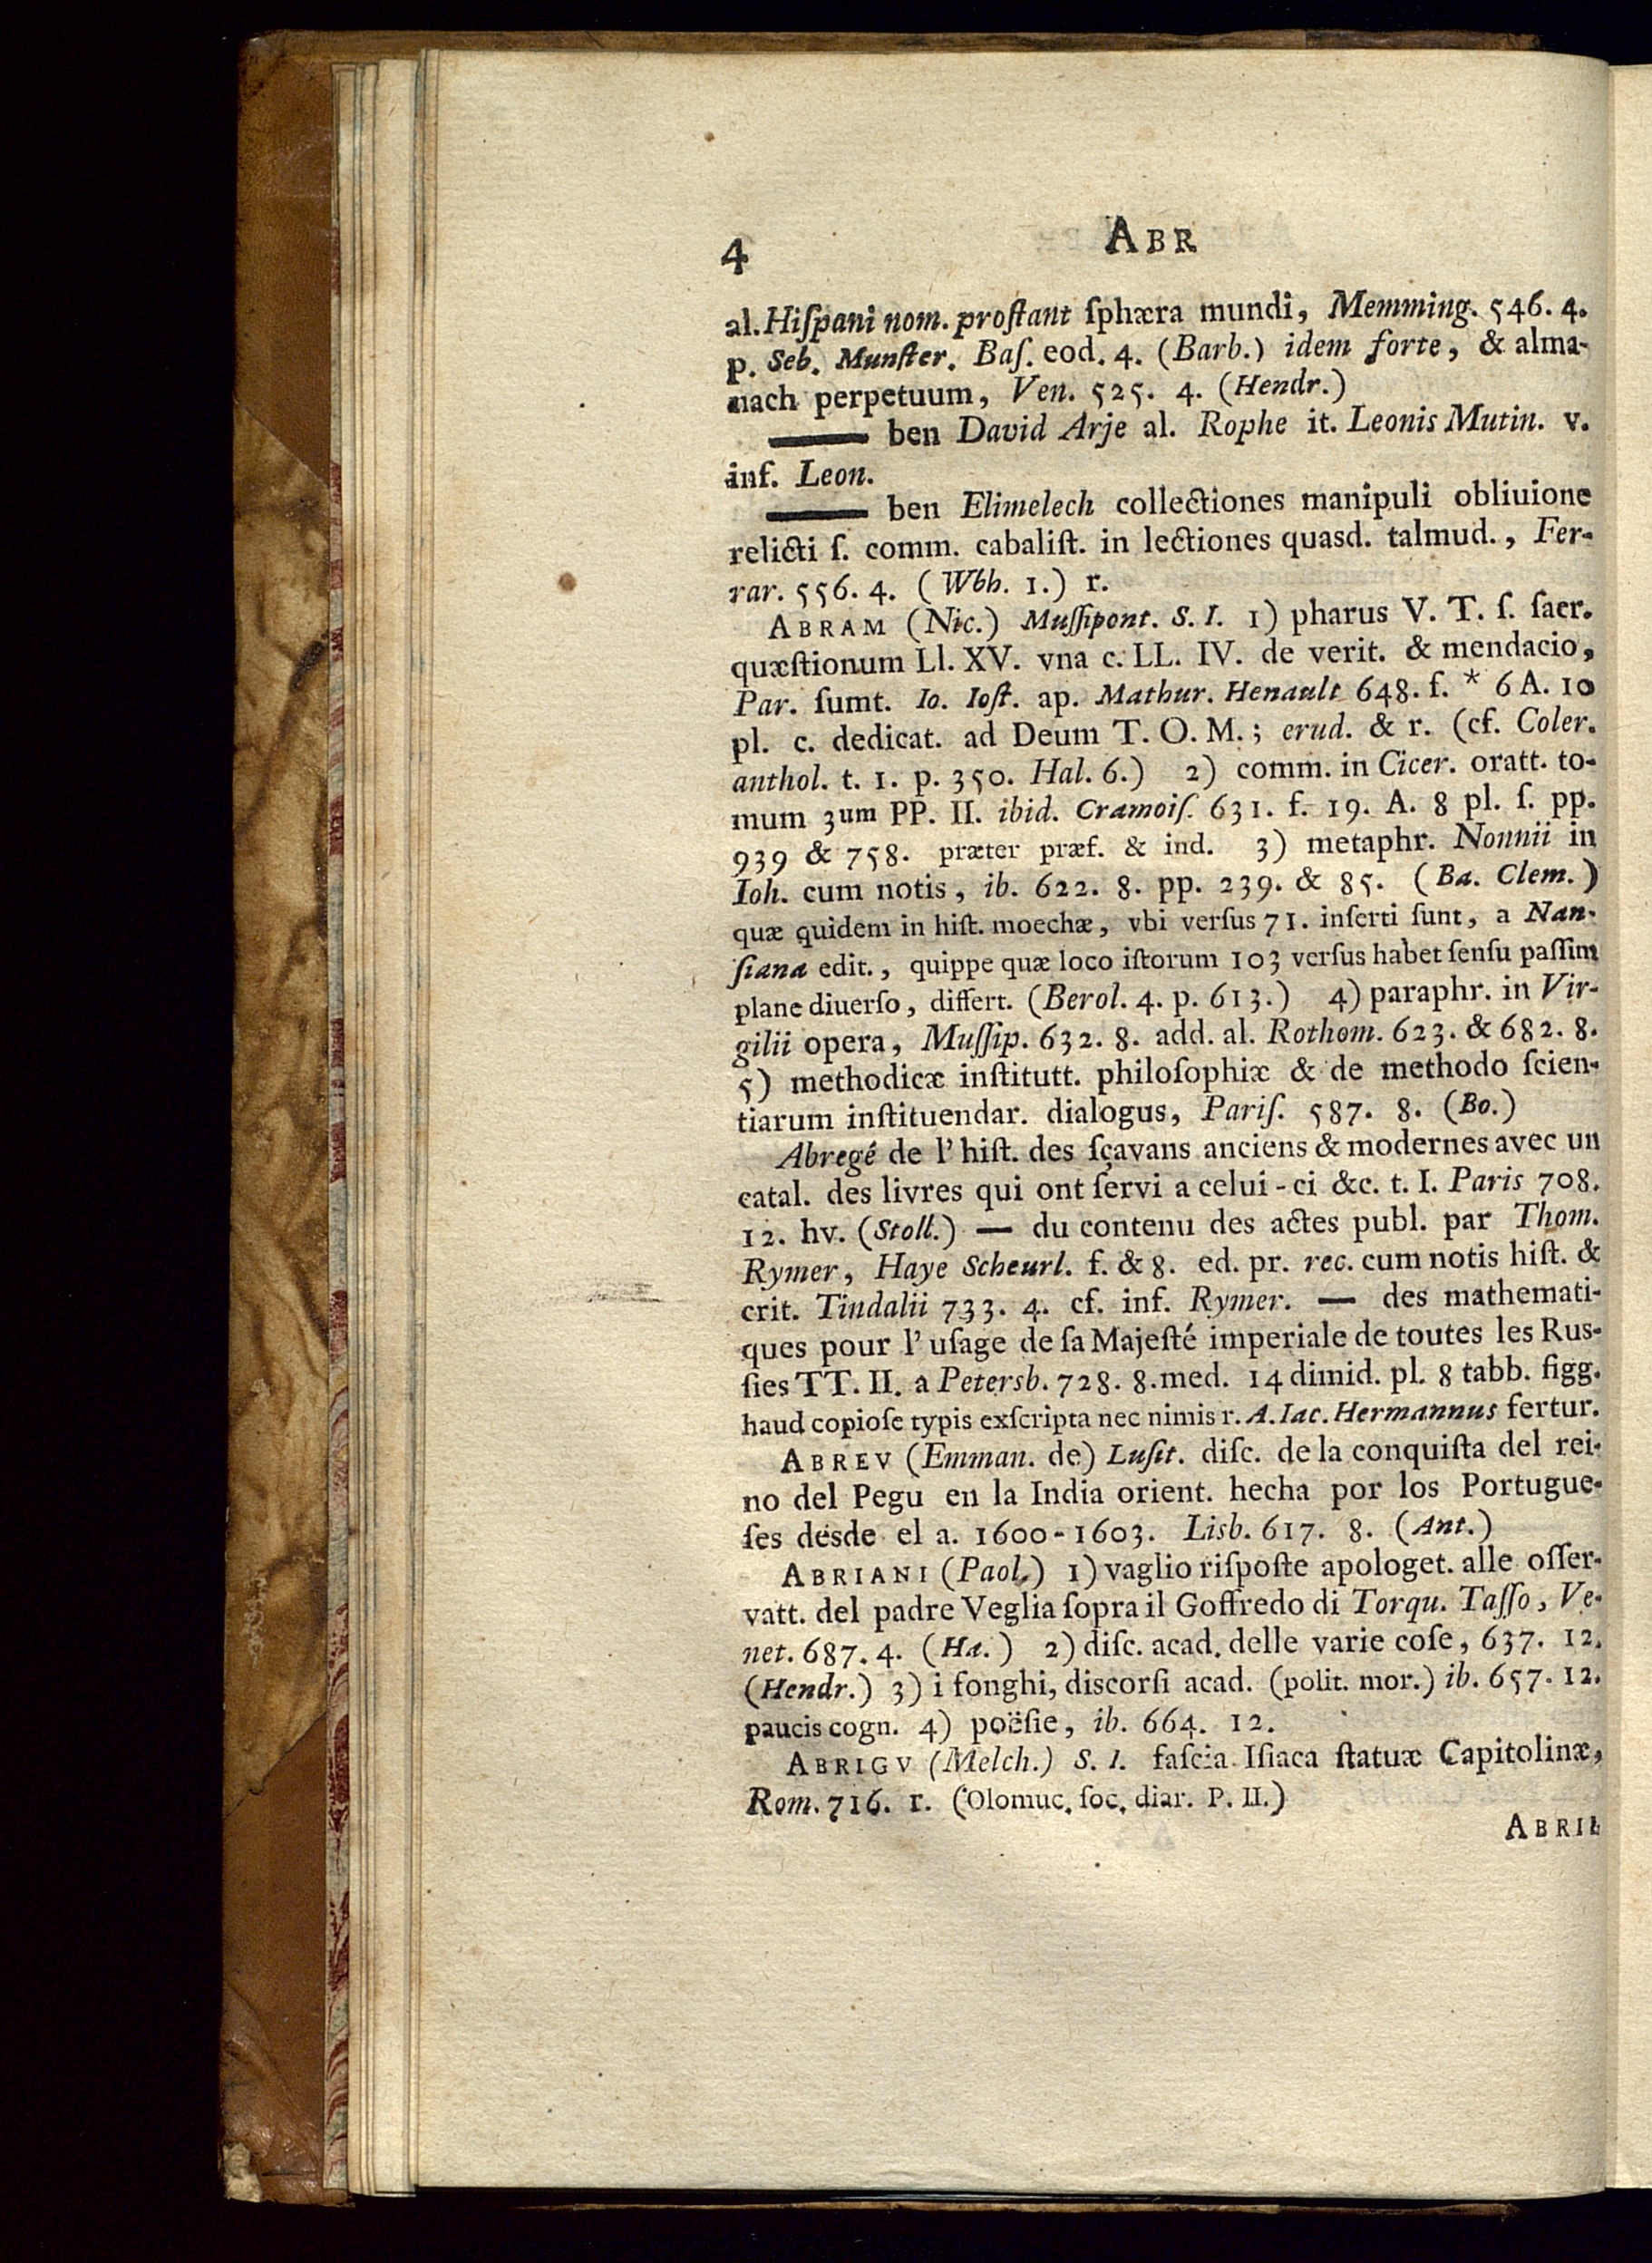 4
ABR
al. Hiſpani nom. proſtant ſphæra mundi, Memming. 546. 4.
p. Seb. Munſter. Baſ. eod. 4. (Barb.) idem forte, & alma-
nach perpetuum, Ven. 525. 4. (Hendr.)
—— ben David Arje al. Rophe it. Leonis Mutin. v.
inf. Leon.
—— ben Elimelech collectiones manipuli obliuione
relicti ſ. comm. cabaliſt. in lectiones quasd. talmud., Fer-
rar. 556. 4. (Wbh. 1.) r.
ABRAM (Nic.) Muſſipont. S. I. 1) pharus V. T. ſ. ſaer.
quæſtionum Ll. XV. vna c. LL. IV. de verit. & mendacio,
Par. ſumt. Io. Ioſt. ap. Mathur. Henault 648. f. * 6 A. 10
pl. c. dedicat. ad Deum T. O. M.; erud. & r. (cf. Coler.
anthol. t. 1. p. 350. Hal. 6.) 2) comm. in Cicer. oratt. to-
mum 3um PP. II. ibid. Cramoiſ. 631. f. 19. A. 8 pl. ſ. pp.
939 & 758. præter præf. & ind. 3) metaphr. Nonnii in
Ioh. cum notis, ib. 622. 8. pp. 239. & 85. (Ba. Clem.)
quæ quidem in hiſt. moechæ, vbi verſus 71. inſerti ſunt, a Nan-
ſiana edit., quippe quæ loco iſtorum 103 verſus habet ſenſu paſſim
plane diuerſo, differt. (Berol. 4. p. 613.) 4) paraphr. in Vir-
gilii opera, Muſſip. 632. 8. add. al. Rothom. 623. & 682. 8.
5) methodicæ inſtitutt. philoſophiæ & de methodo ſcien-
tiarum inſtituendar. dialogus, Pariſ. 587. 8. (Bo.)
Abregé de l' hiſt. des ſçavans anciens & modernes avec un
catal. des livres qui ont ſervi a celui-ci &c. t. I. Paris 708.
12. hv. (Stoll.) — du contenu des actes publ. par Thom.
Rymer, Haye Scheurl. f. & 8. ed. pr. rec. cum notis hiſt. &
crit. Tindalii 733. 4. cf. inf. Rymer. — des mathemati-
ques pour l' uſage de ſa Majeſté imperiale de toutes les Rus-
ſies TT. II. a Petersb. 728. 8. med. 14 dimid. pl. 8 tabb. figg.
haud copioſe typis exſcripta nec nimis r. A. Iac. Hermannus fertur.
ABREV (Emman. de) Luſit. diſc. de la conquiſta del rei-
no del Pegu en la India orient. hecha por los Portugue-
ſes desde el a. 1600-1603. Lisb. 617. 8. (Ant.)
ABRIANI (Paol.) 1) vaglio riſpoſte apologet. alle oſſer-
vatt. del padre Veglia ſopra il Goffredo di Torqu. Taſſo, Ve-
net. 687. 4. (Ha.) 2) diſc. acad. delle varie coſe, 637. 12.
(Hendr.) 3) i fonghi, discorſi acad. (polit. mor.) ib. 657. 12.
paucis cogn. 4) poëſie, ib. 664. 12.
ABRIGV (Melch.) S. I. faſcia Iſiaca ſtatuæ Capitolinæ,
Rom. 716. r. (Olomuc. ſoc. diar. P. II.)
ABRIL